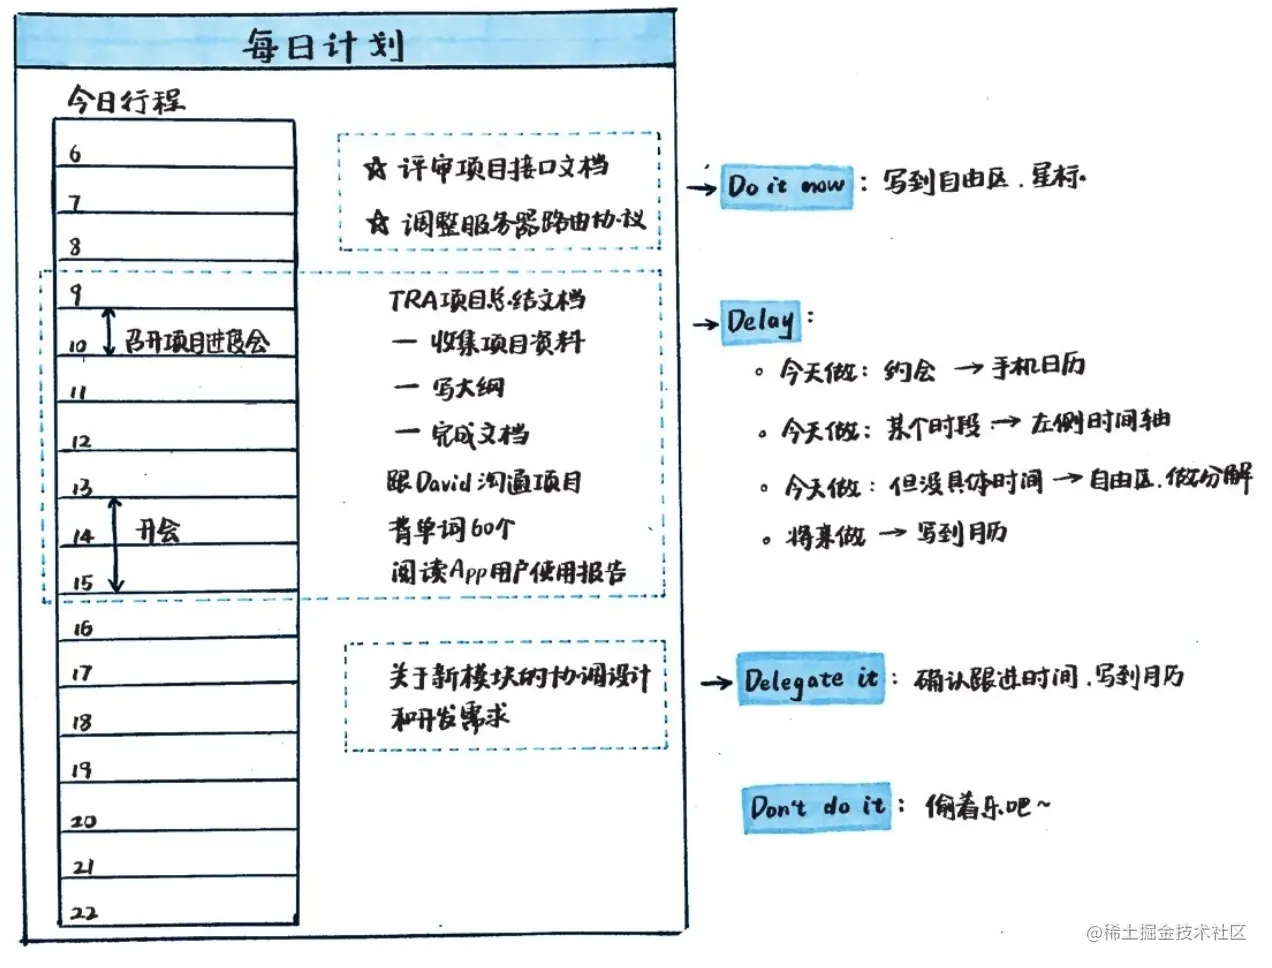 每日计划
今日行程
6
7
8
9
10 召开项目进度会
11
12
13
14 开会
15
16
17
18
19
20
21
22
☆ 评审项目接口文档
☆ 调整服务器路由协议
TRA项目总结文档
— 收集项目资料
— 写大纲
— 完成文档
跟David沟通项目
背单词60个
阅读App用户使用报告
关于新模块的协调设计
和开发需求
→ Do it now : 写到自由区. 星标.
→ Delay :
。今天做: 约会 → 手机日历
。今天做: 某个时段 → 左侧时间轴
。今天做: 但没具体时间 → 自由区.做分解
。将来做 → 写到月历
→ Delegate it : 确认跟进时间.写到月历
Don't do it : 偷着乐吧~
@稀土掘金技术社区